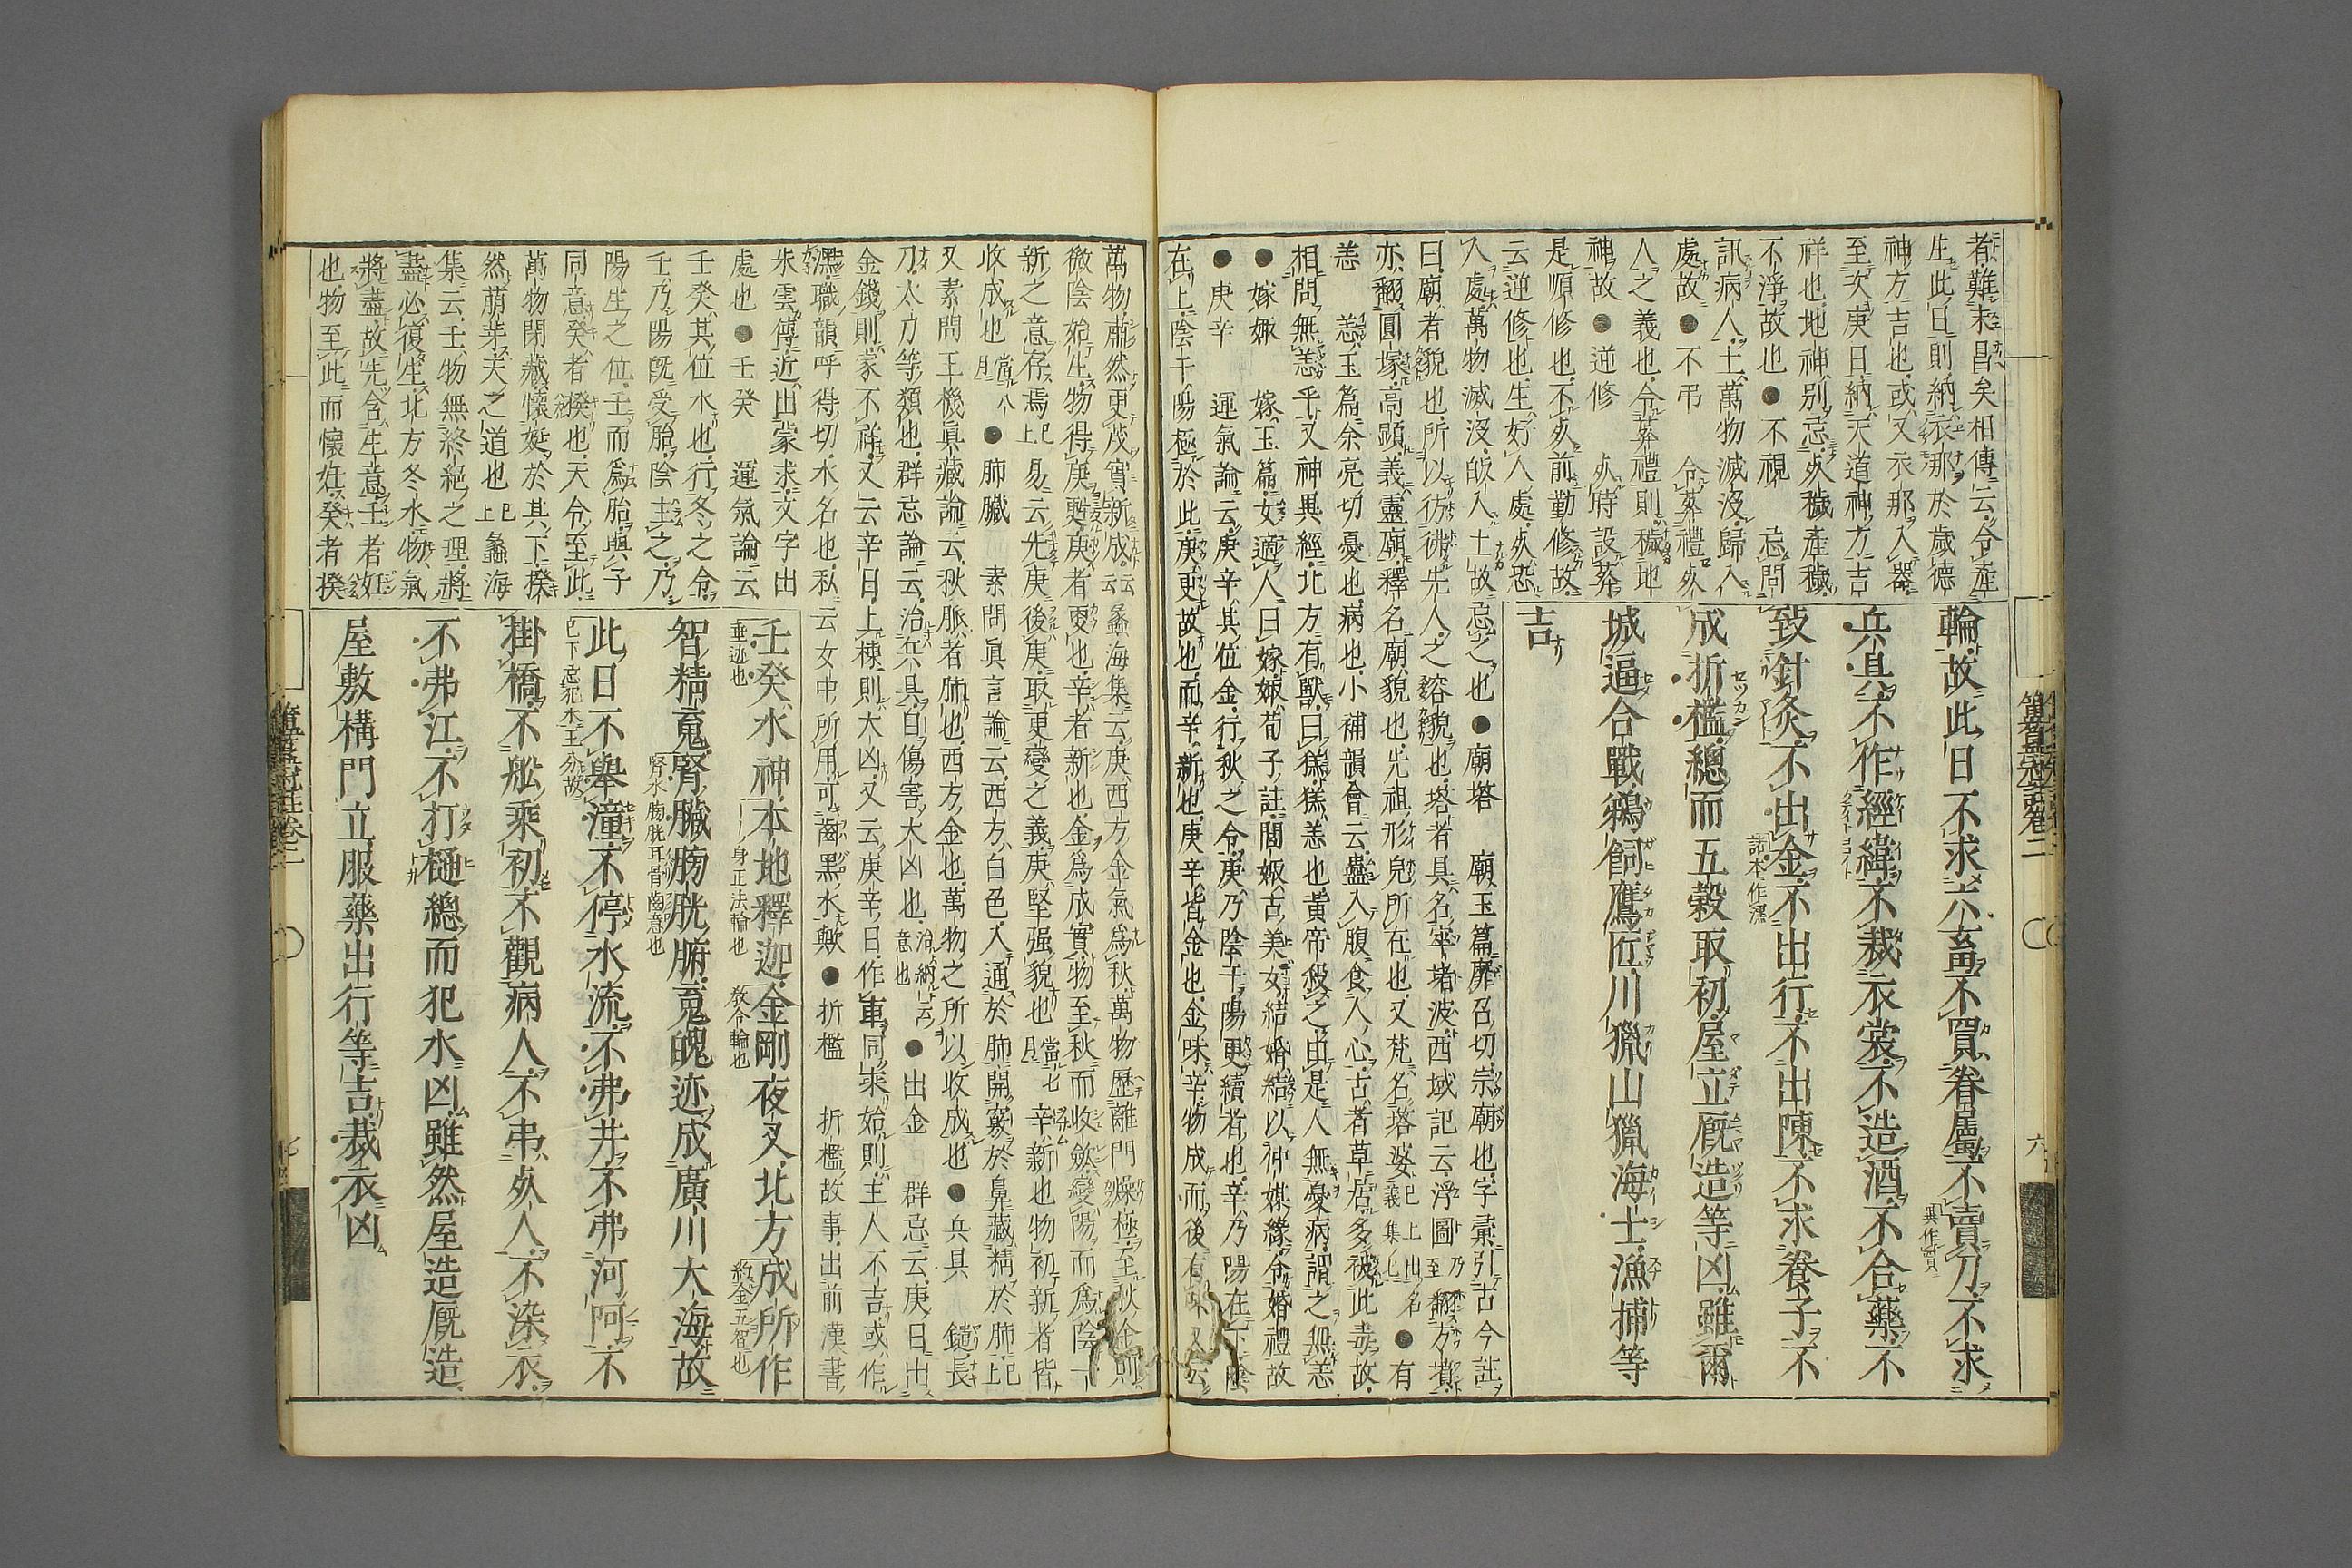 者難末昌矣相傳云今產
生此日則納衣那於歲德
神方吉也或又衣那入器
至次庚日納天道神方吉
祥也地神別忌㱕穢產穢
不淨故也●不視　忌問
訊病人土萬物滅沒歸入
處故●不弔　令葬禮㱕
人之義也令葬禮則穢地
神故●逆修　㱕時設葬
是順修也不㱕前勤修故
云逆修也生好人處㱕恐
輪故此日不求六畜不買眷屬不賣刀不求
兵具不作經緯不裁衣裳不造酒不合藥不
致針灸不出金不出行不出陳不求養子不
成折檻總而五穀取初屋立厩造等凶雖爾
城逼合戰鵜飼鷹匠川獵山獵海士漁捕等
吉
入處萬物滅沒皈入土故忌之也●廟塔　廟玉篇靡召切宗廟也字彙引古今註
曰廟者貌也所以彷彿先人之容貌也塔者具名窣堵波西域記云浮圖
亦翻圓塚高顯義靈廟釋名廟貌也先祖形皃所在也又梵名塔婆
恙　恙玉篇余亮切憂也病也小補韻會云蠱入腹食人心古者草居多被此毒故
相問無恙乎又神異經北方有獸曰㺊㺊恙也黃帝殺之由是人無憂病謂之無恙
●嫁娵　嫁玉篇女適人曰嫁娵荀子註閭娵古美女結婚結以仲媒緣令婚禮故
●庚辛　運氣論云庚辛其位金行秋之令庚乃陰干陽更續者也辛乃陽在下陰
在上陰干陽極於此庚更故也而辛新也庚辛皆金也金味辛物成而後有味又云
萬物肅然更茂實新成云　蠡海集云庚西方金氣爲秋萬物歷離門燥極至秋金則
微陰始生物得庚甦庚者更也辛者新也金爲成實物至秋而收斂變陽而爲陰
新之意存焉已上易云先庚後庚取更變之義庚堅强貌也當七月辛新也物初新者皆
收成也當八月●肺臟　素問眞言論云西方白色入通於肺開竅於鼻藏精於肺已上
又素問玉機眞藏論云秋脈者肺也西方金也萬物之所以收成也●兵具　鎚長
刀太刀等類也群忌論云治兵具自傷害大凶也治納云意也●出金　群忌云庚日出
金錢則家不祥又云辛日上棟則大凶又云庚辛日作車同乘始則主人不吉或作
濕職韻呼得切水名也私云女中所用可齒黑水歟●折檻　折檻故事出前漢書
朱雲傳近出蒙求文字出
處也●壬癸　運氣論云
壬癸其位水也行冬之令
壬乃陽旣受胎陰主之乃
陽生之位壬而爲胎與子
同意癸者揆也天令至此
萬物閉藏懷姙於其下揆
然萌芽天之道也已上蠡海
集云壬物無終絕之理將
盡必復生北方冬水物氣
將盡故先含生意壬者妊
也物至此而懷妊癸者揆
壬癸水神本地釋迦金剛夜叉北方成所作
智精寬腎臟膀胱腑寬魄迹成廣川大海故
此日不舉潼不停水流不弗井不弗河阿不
掛橋不舩乘初不觀病人不弔㱕人不染衣
不弗江不打樋總而犯水凶雖然屋造厩造
屋敷構門立服藥出行等吉裁衣凶
簠簋冠註卷二
六